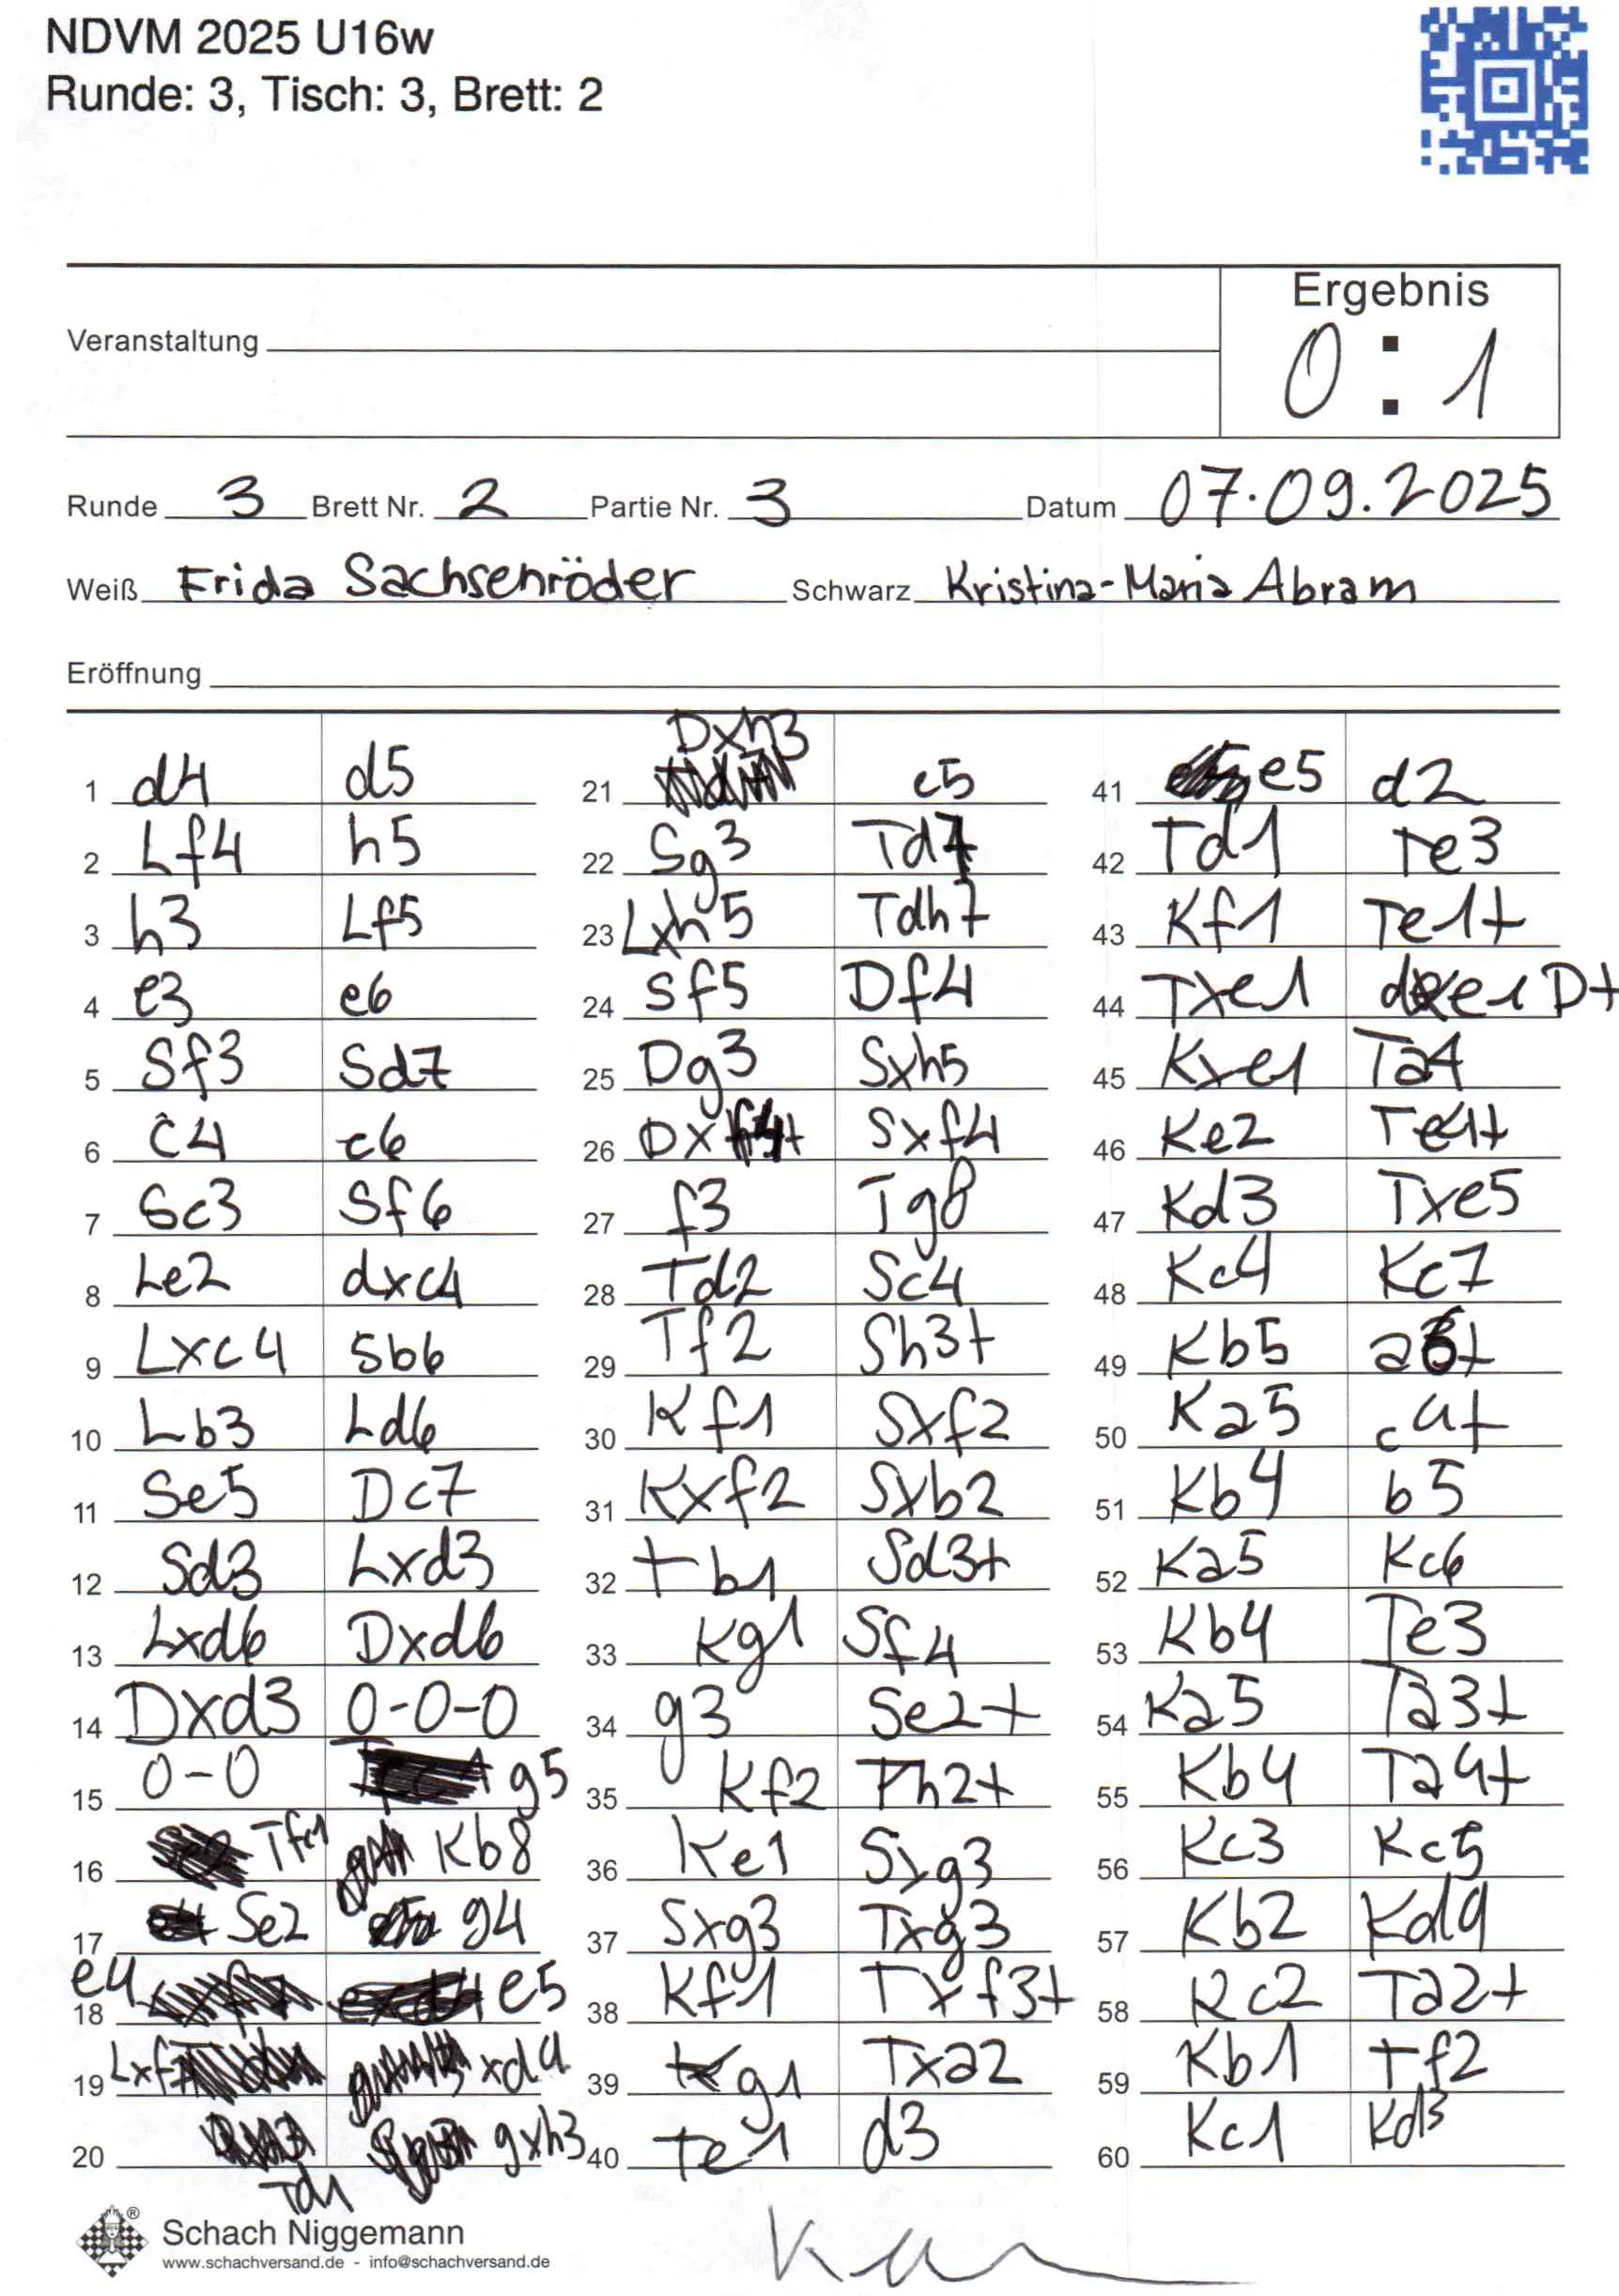 NDVM 2025 U16w
Runde: 3, Tisch: 3, Brett: 2
Ergebnis
0 : 1
Veranstaltung
Runde 3 Brett Nr. 2 Partie Nr. 3 Datum 07.09.2025
Weiß Frida Sachsenröder Schwarz Kristina-Maria Abram
Eröffnung
1 d4 d5
2 Lf4 h5
3 h3 Lf5
4 e3 e6
5 Sf3 Sd7
6 c4 c6
7 Sc3 Sf6
8 Le2 dxc4
9 Lxc4 Sb6
10 Lb3 Ld6
11 Se5 Dc7
12 Sd3 Lxd3
13 Lxd6 Dxd6
14 Dxd3 0-0-0
15 0-0 g5
16 Kb8
17 Se2 g4
18 e4 e5
19 Lxf7 xd4
20 Td1 gxh3
21 Dxh3 c5
22 Sg3 Td7
23 Lxh5 Tdh7
24 Sf5 Df4
25 Dg3 Sxh5
26 Dxf4+ Sxf4
27 f3 Tg8
28 Td2 Sc4
29 Tf2 Sh3+
30 Kf1 Sxf2
31 Kxf2 Sxb2
32 Tb1 Sd3+
33 Kg1 Sf4
34 g3 Se2+
35 Kf2 Th2+
36 Ke1 Sxg3
37 Sxg3 Txg3
38 Kf1 Txf3+
39 Kg1 Txa2
40 Te1 d3
41 e5 d2
42 Td1 Te3
43 Kf1 Te1+
44 Txe1 dxe1D+
45 Kxe1 Ta4
46 Ke2 Te4+
47 Kd3 Txe5
48 Kc4 Kc7
49 Kb5 a6+
50 Ka5 c4+
51 Kb4 b5
52 Ka5 Kc6
53 Kb4 Te3
54 Ka5 Ta3+
55 Kb4 Ta4+
56 Kc3 Kc5
57 Kb2 Kd4
58 Kc2 Ta2+
59 Kb1 Tf2
60 Kc1 Kd3
Schach Niggemann
www.schachversand.de - info@schachversand.de